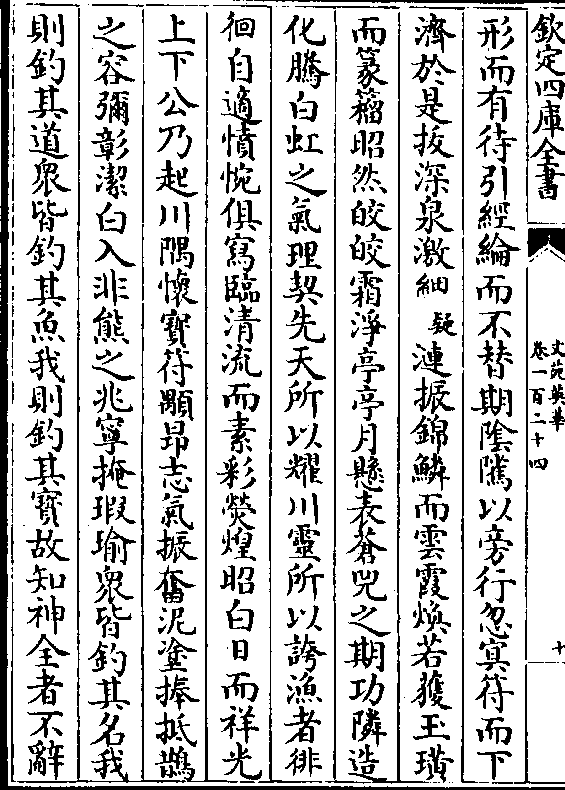 欽定四庫全書
文苑英華
卷一百二十四
十
形而有待引經綸而不替期陰隲以旁行忽冥符而下
濟於是拔深泉激細疑漣振錦鱗而雲霞煥若獲玉璜
而篆籕昭然皎皎霜淨亭亭月懸表蒼兕之期功隣造
化騰白虹之氣理契先天所以耀川靈所以誇漁者徘
徊自適憤惋俱寫臨清流而素彩熒煌昭白日而祥光
上下公乃起川隅懷寶符顒昂志氣振奮泥塗捧抵鵲
之容彌彰潔白入非熊之兆寧掩瑕瑜衆皆釣其名我
則釣其道衆皆釣其魚我則釣其寳故知神全者不辭